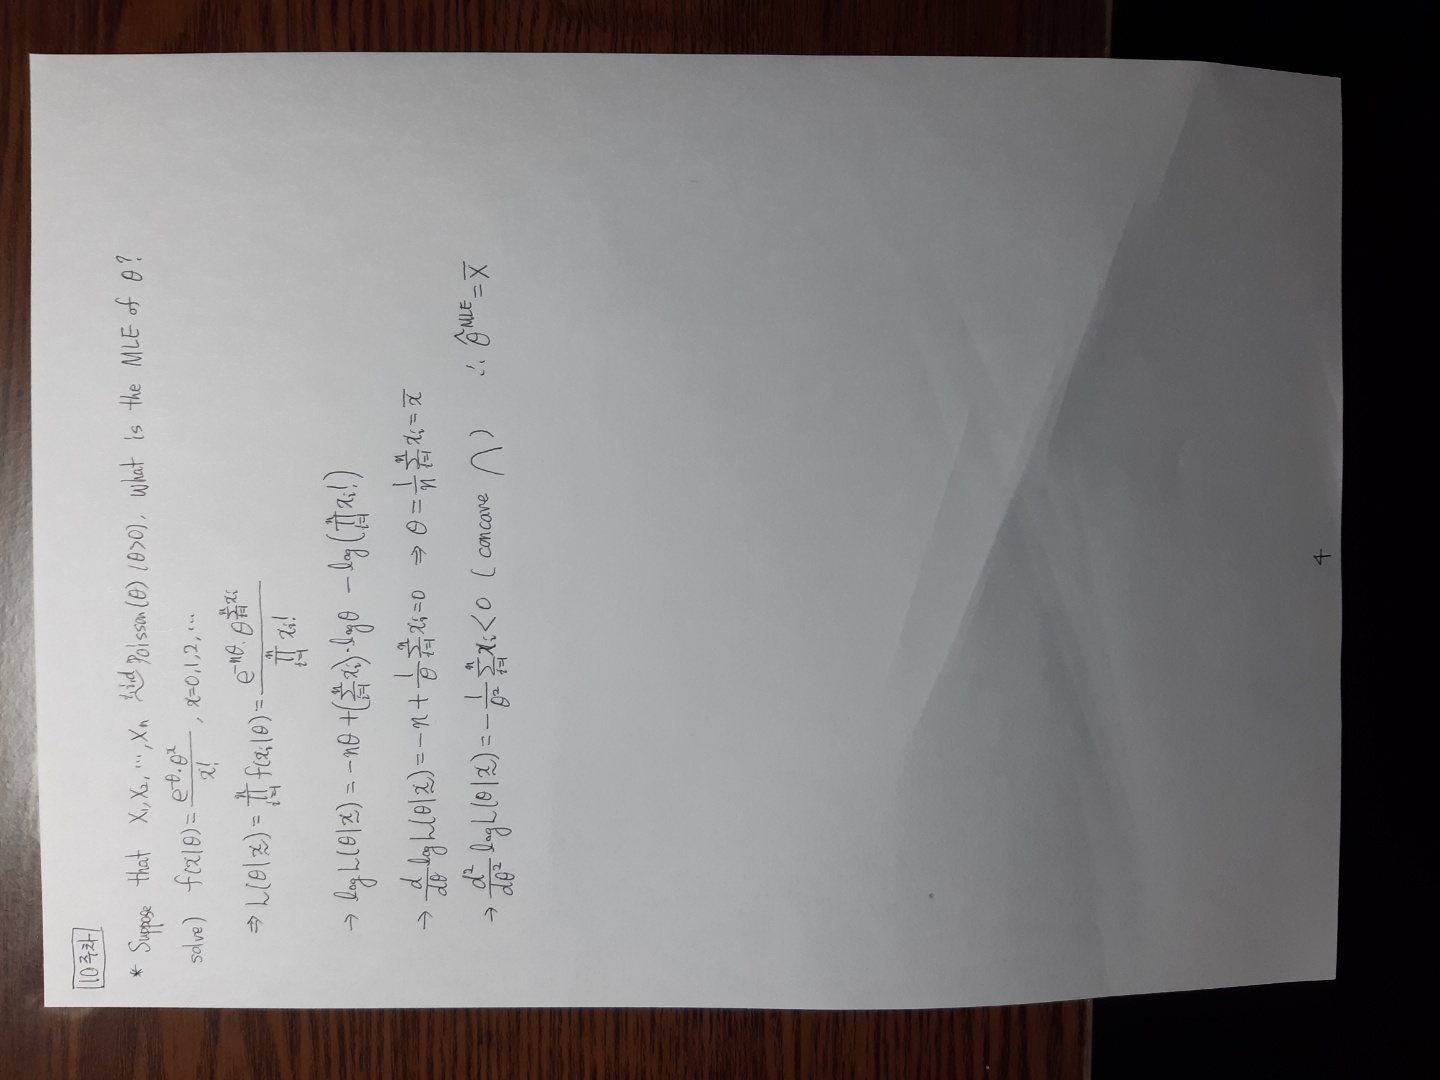 10주차
* Suppose that X₁, X₂, ⋯, Xₙ ~iid Poisson(θ) (θ>0), what is the MLE of θ?
solve) f(x|θ) = (e^(-θ)·θ^x)/(x!), x=0,1,2,⋯
⇒ L(θ|x̰) = ∏_{i=1}^{n} f(xᵢ|θ) = (e^(-nθ)·θ^(∑_{i=1}^{n} xᵢ))/(∏_{i=1}^{n} xᵢ!)
→ log L(θ|x̰) = -nθ + (∑_{i=1}^{n} xᵢ)·logθ - log(∏_{i=1}^{n} xᵢ!)
→ d/dθ log L(θ|x̰) = -n + 1/θ ∑_{i=1}^{n} xᵢ = 0 ⇒ θ = 1/n ∑_{i=1}^{n} xᵢ = x̄
→ d²/dθ² log L(θ|x̰) = - 1/θ² ∑_{i=1}^{n} xᵢ < 0 (concave ⋂) ∴ θ̂^MLE = X̄
4